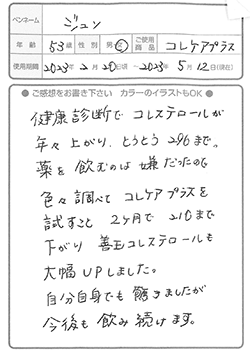 ペンネーム ジュン
年齢 53歳 性別 男・女 ご使用商品 コレケアプラス
使用期間 2023年2月20日頃 〜 2023年5月12日(現在)
●ご感想をお書き下さい カラーのイラストもOK●
健康診断で コレステロールが
年々上がり、とうとう 296まで。
薬を飲むのは嫌だったので
色々調べて コレケアプラスを
試すこと 2ヶ月で 210まで
下がり 善玉コレステロールも
大幅UPしました。
自分自身でも 驚きましたが
今後も 飲み続けます。